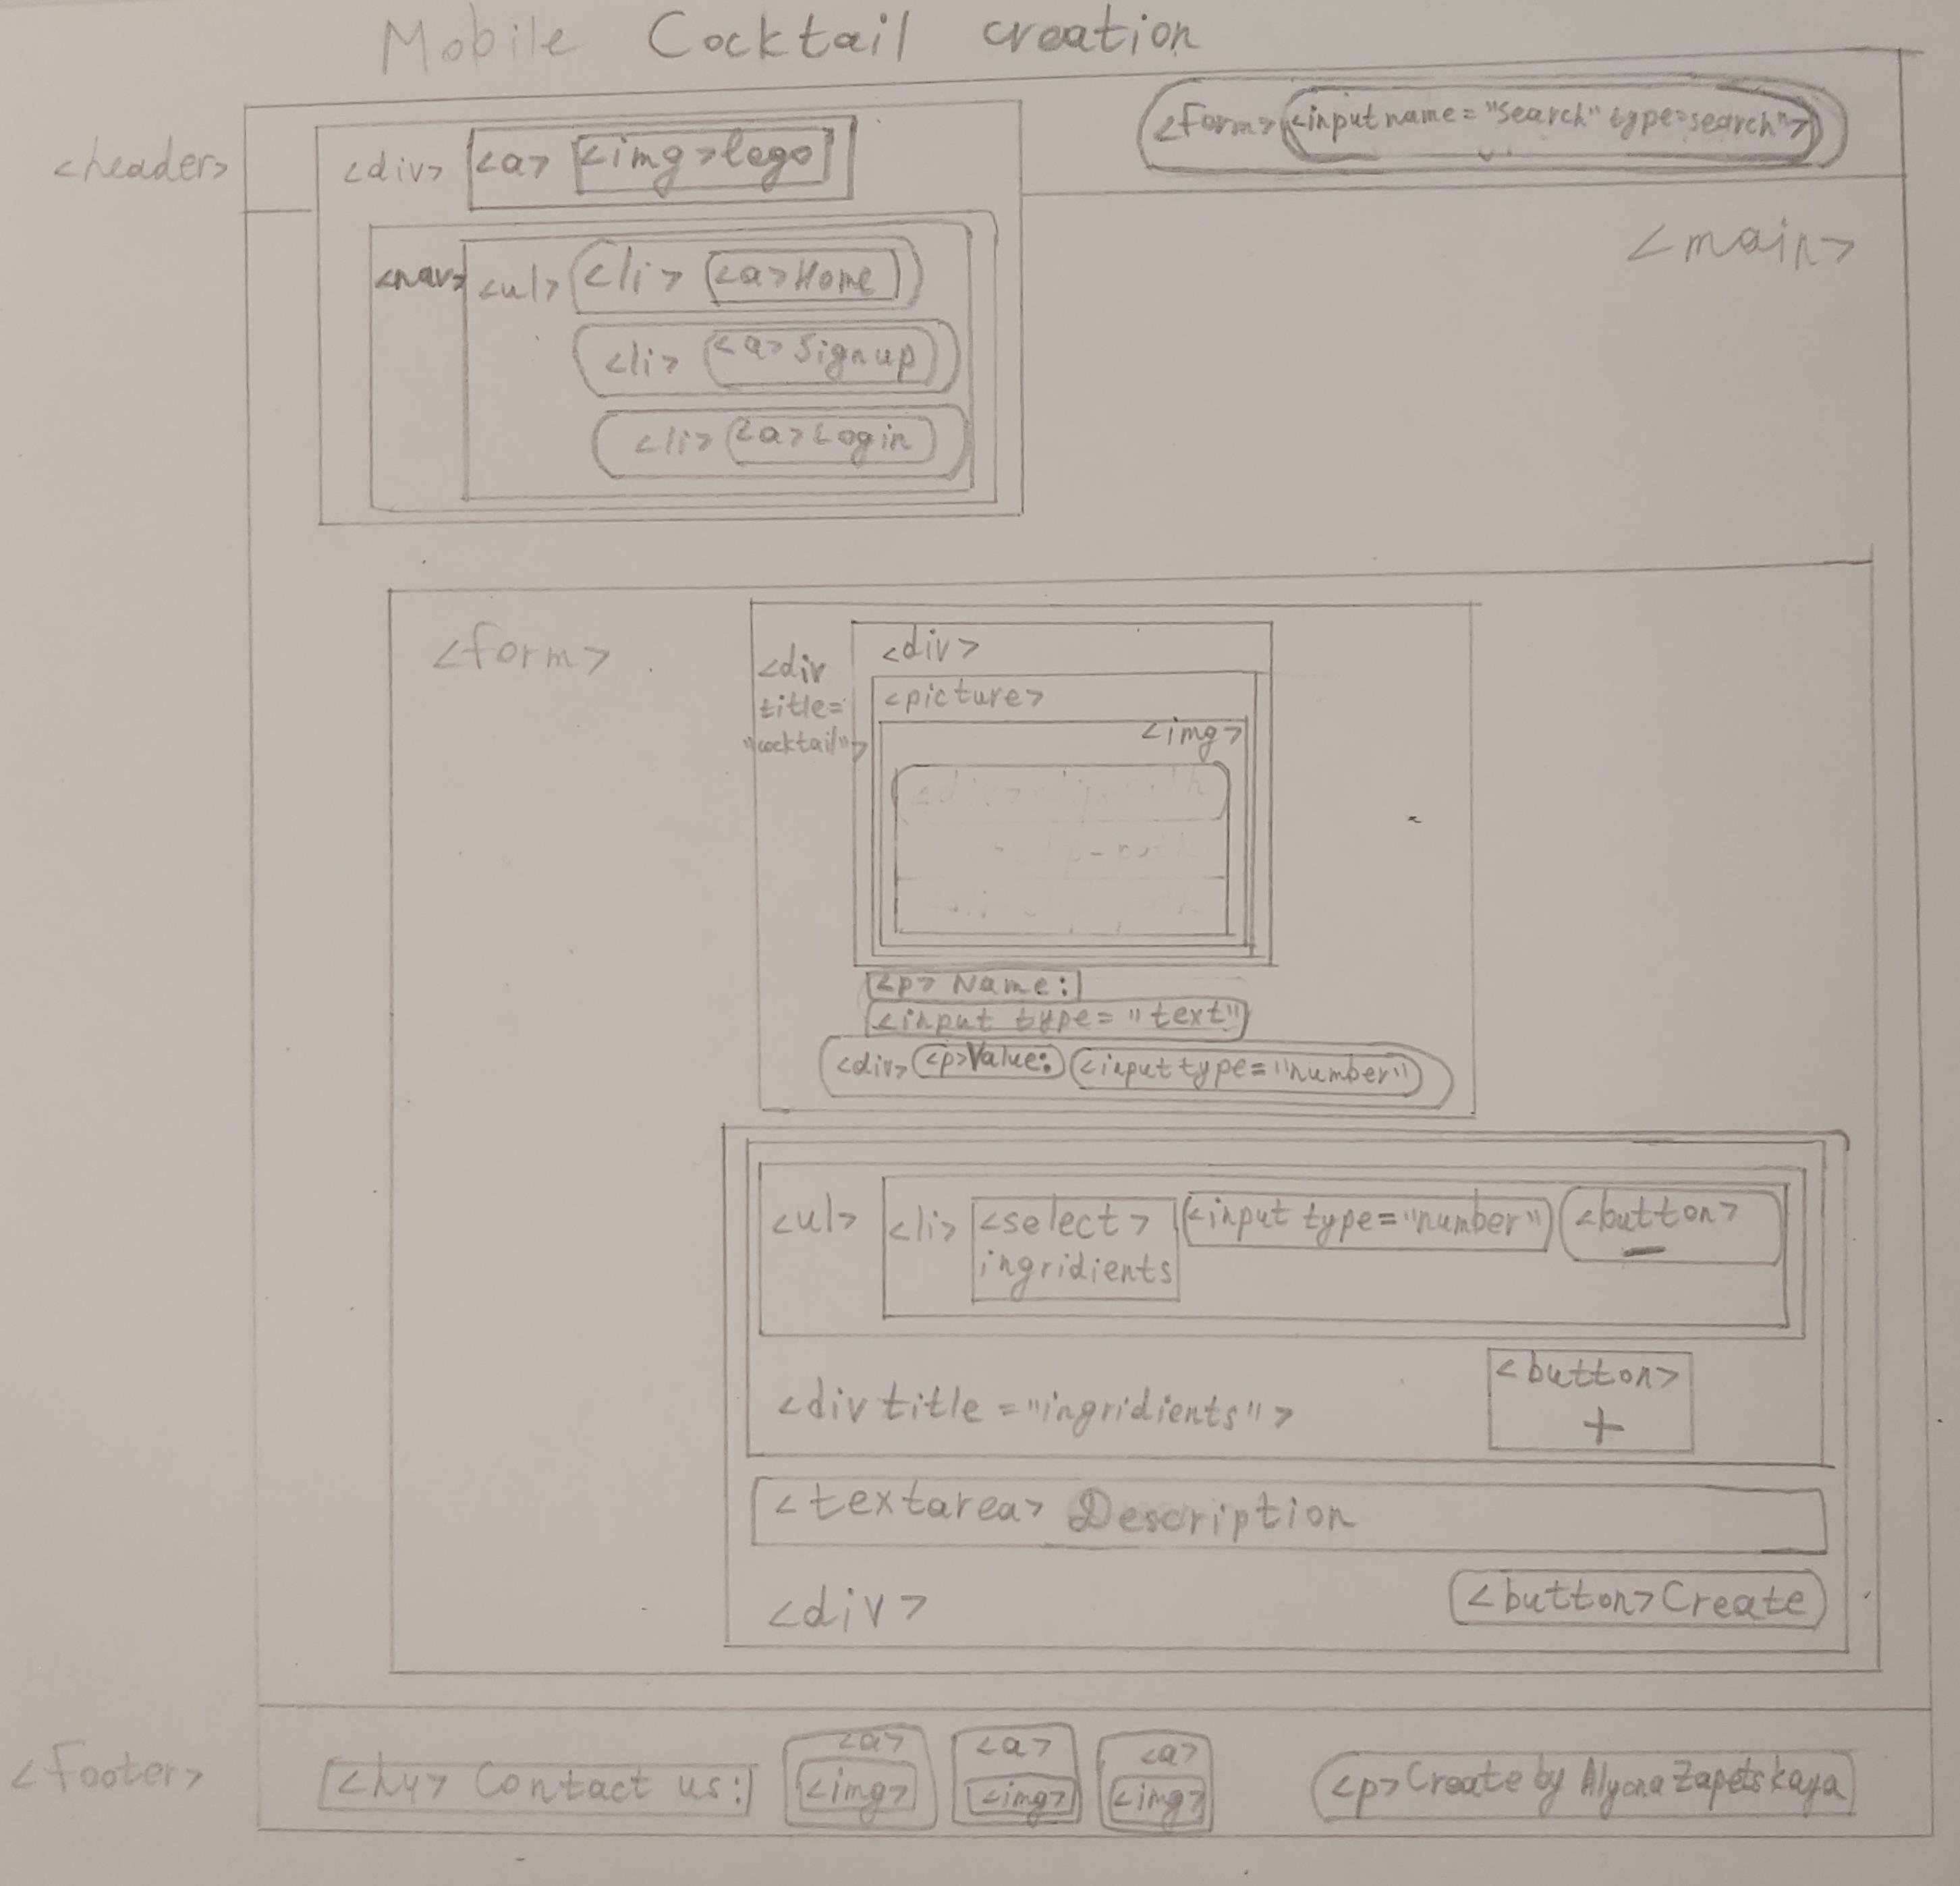 Mobile Cocktail creation
<header>
<div> <a> <img> logo
<form> <input name="search" type=search">
<nav> <ul> <li> <a> Home
<li> <a> Sign up
<li> <a> Login
<main>
<form>
<div
title=
"cocktail">
<div>
<picture>
<img>
<p> Name:
<input type="text"
<div> <p> Value: <input type="number")
<ul> <li> <select> <input type="number") <button>
ingridients -
<div title="ingridients">
<button>
+
<textarea> Description
<div> <button> Create
<footer>
<h4> Contact us: <a> <a> <a>
<img> <img> <img>
<p> Create by Alyona Zapetskaya